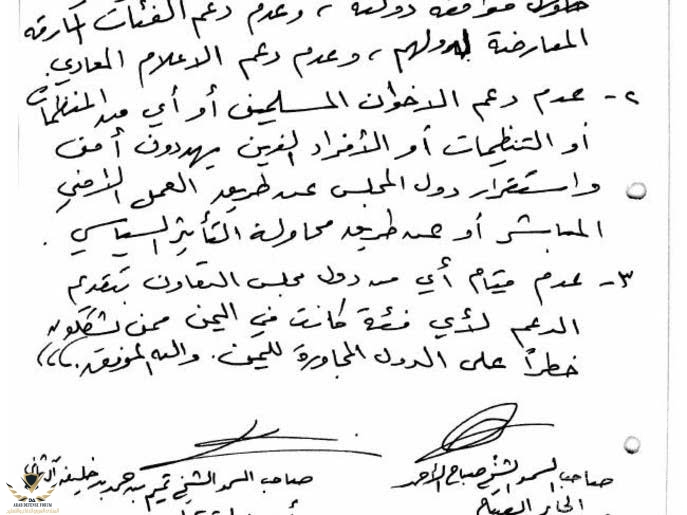 دولته، وعدم دعم الفئات المارقة
المعارضة لدولهم، وعدم دعم الاعلام المعادي.
٢- عدم دعم الاخوان المسلمين أو أي من المنظمات
أو التنظيمات أو الأفراد الذين يهددون أمن
واستقرار دول المجلس عن طريق العمل الأمني
المباشر أو عن طريق محاولة التأثير السياسي.
٣- عدم قيام أي من دول مجلس التعاون بتقديم
الدعم لأي فئة كانت في اليمن ممن يشكلون
خطراً على الدول المجاورة لليمن. والله الموفق،،،
صاحب السمو الشيخ صباح الأحمد
الجابر الصباح
صاحب السمو الشيخ تميم بن حمد بن خليفة آل ثاني
ARAB DEFENSE FORUM